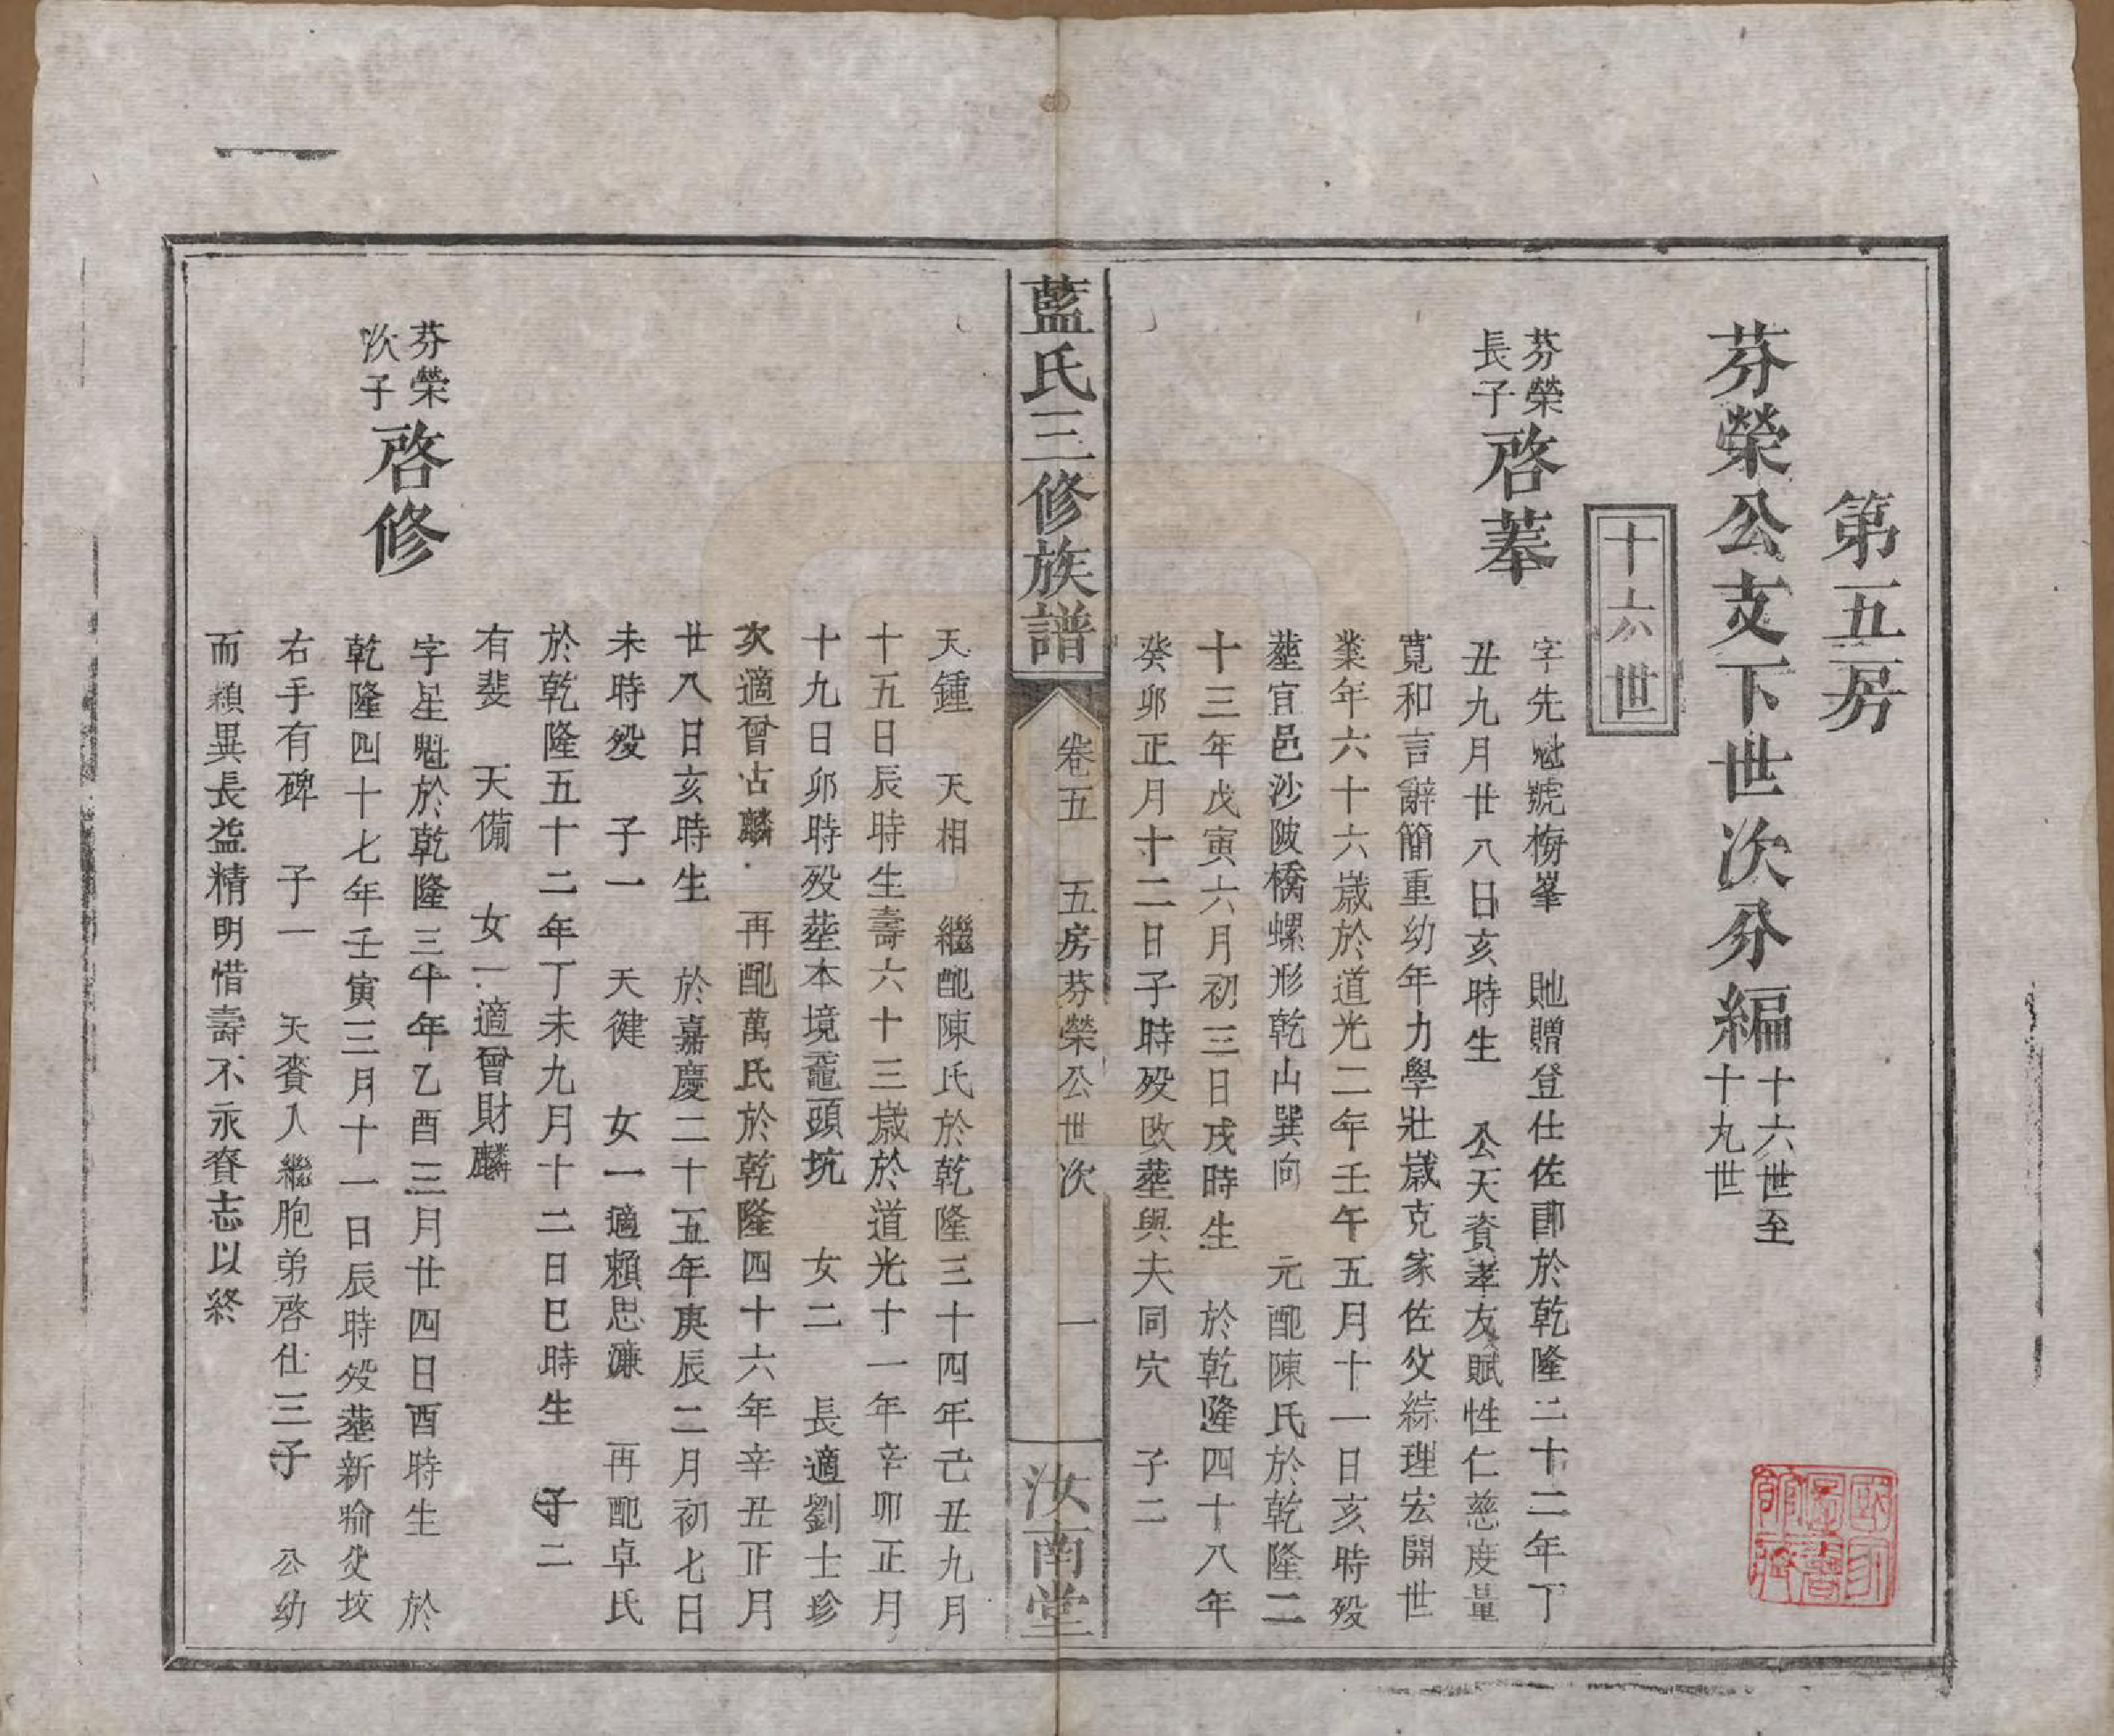 第五房
芬榮公支下世次分編十六世至十九世
十六世
芬榮長子啓摹
字先魁號梅峯　貤贈登仕佐郎於乾隆二十二年丁
丑九月廿八日亥時生　公天資孝友賦性仁慈度量
寬和言辭簡重幼年力學壯歲克家佐父綜理宏開世
業年六十六歲於道光二年壬午五月十一日亥時殁
塟宜邑沙陂橋螺形乾山巽向　元配陳氏於乾隆二
十三年戊寅六月初三日戌時生　於乾隆四十八年
癸卯正月十二日子時殁改塟與夫同穴　子二
藍氏三修族譜
卷五　五房芬榮公世次　一
汝南堂
天鍾　天相　繼配陳氏於乾隆三十四年己丑九月
十五日辰時生壽六十三歲於道光十一年辛卯正月
十九日卯時殁塟本境竈頭坑　女二　長適劉士珍
次適曾占麟　再配萬氏於乾隆四十六年辛丑正月
廿八日亥時生　於嘉慶二十五年庚辰二月初七日
未時殁　子一　天健　女一適賴思濂　再配卓氏
於乾隆五十二年丁未九月十二日巳時生　子二
有斐　天備　女一適曾財麟
芬榮次子啓修
字星魁於乾隆三十年乙酉三月廿四日酉時生　於
乾隆四十七年壬寅三月十一日辰時殁塟新喻父坟
右手有碑　子一　天賚入繼胞弟啓仕三子　公幼
而穎異長益精明惜壽不永賫志以終